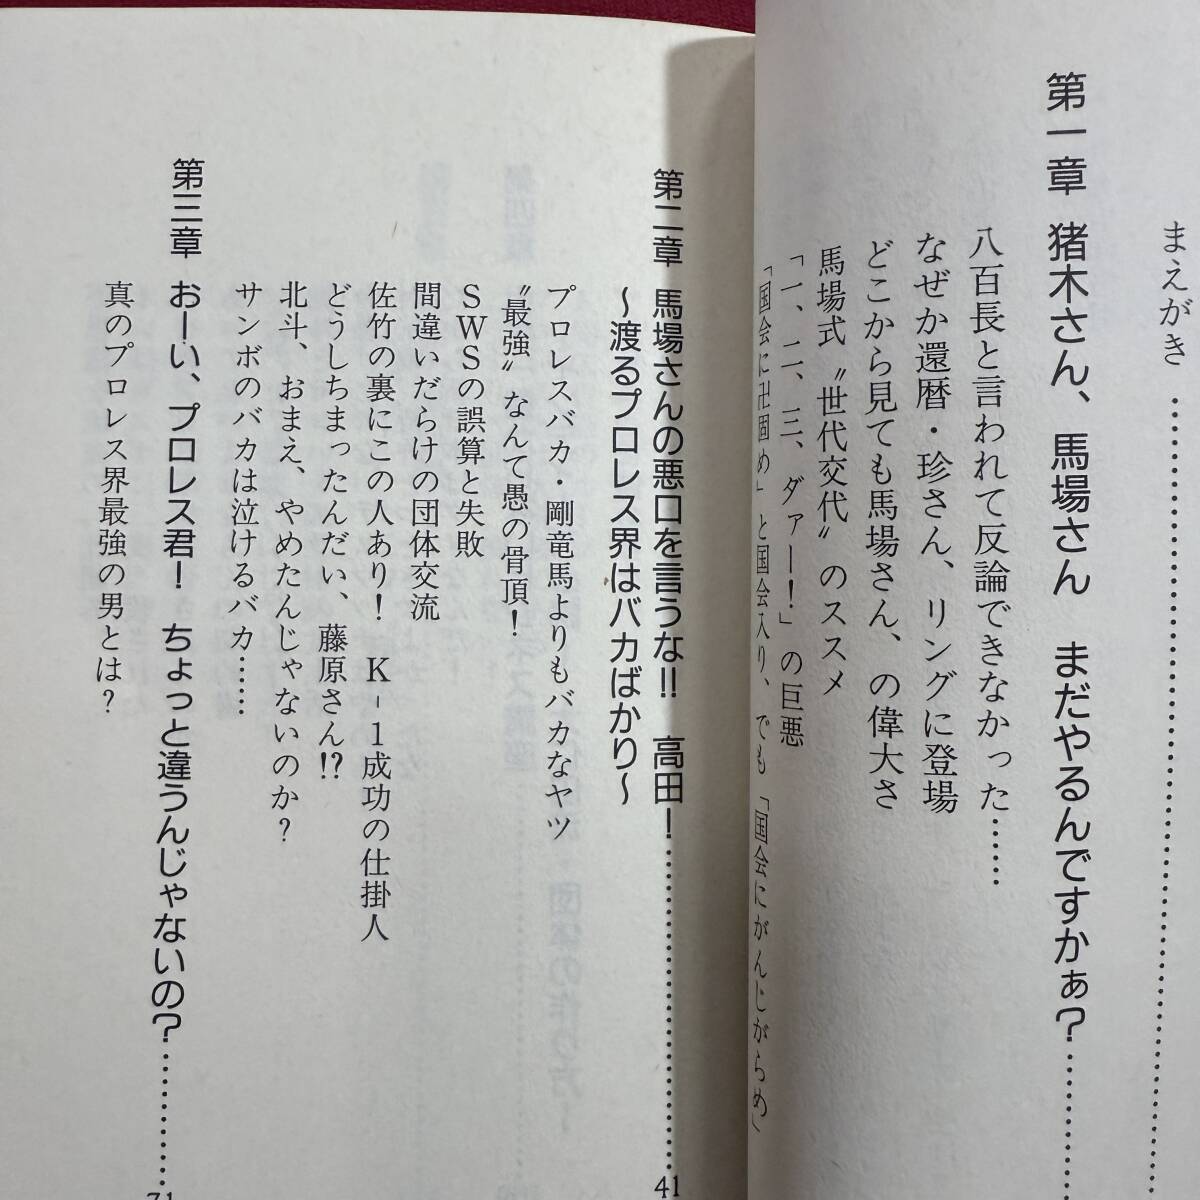 まえがき……………………
第一章 猪木さん、馬場さん まだやるんですかぁ?…………
八百長と言われて反論できなかった……
なぜか還暦・珍さん、リングに登場
どこから見ても馬場さん、の偉大さ
馬場式〝世代交代〟のススメ
「一、二、三、ダァー!」の巨悪
「国会に卍固め」と国会入り、でも「国会にがんじがらめ」
第二章 馬場さんの悪口を言うな!! 高田!……………………41
~渡るプロレス界はバカばかり~
プロレスバカ・剛竜馬よりもバカなヤツ
〝最強〟なんて愚の骨頂!
SWSの誤算と失敗
間違いだらけの団体交流
佐竹の裏にこの人あり! K-1成功の仕掛人
どうしちまったんだい、藤原さん!?
北斗、おまえ、やめたんじゃないのか?
サンボのバカは泣けるバカ……
第三章 おーい、プロレス君! ちょっと違うんじゃないの?…………71
真のプロレス界最強の男とは?